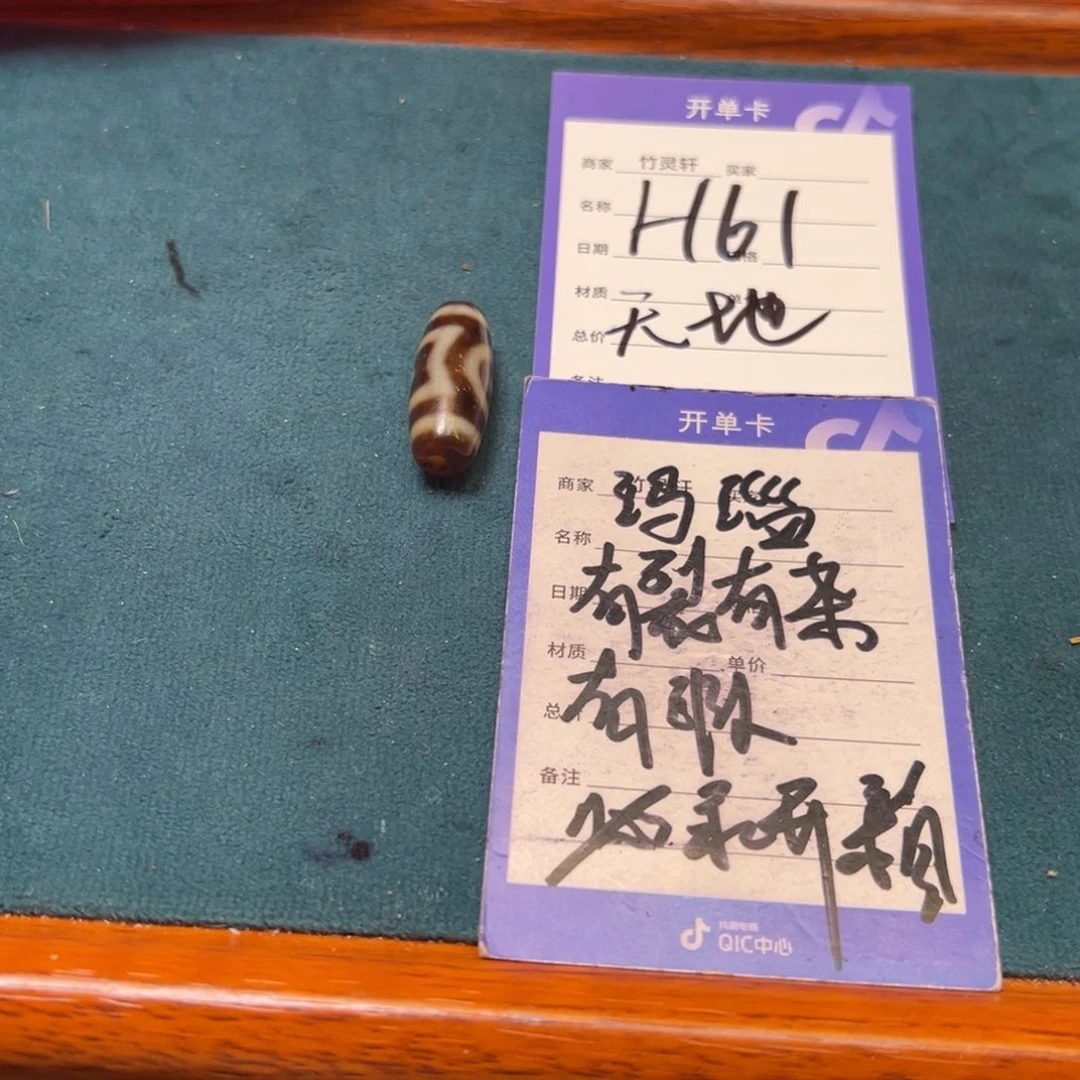 开单卡
商家 竹灵轩 买家
名称
H61
日期 格
材质 单
天地
总价
备注
开单卡
商家 竹灵轩
玛瑙
名称
有裂有染
日期
材质 单价
有瑕
总价
备注
必录开视频
抖音电商
QIC中心